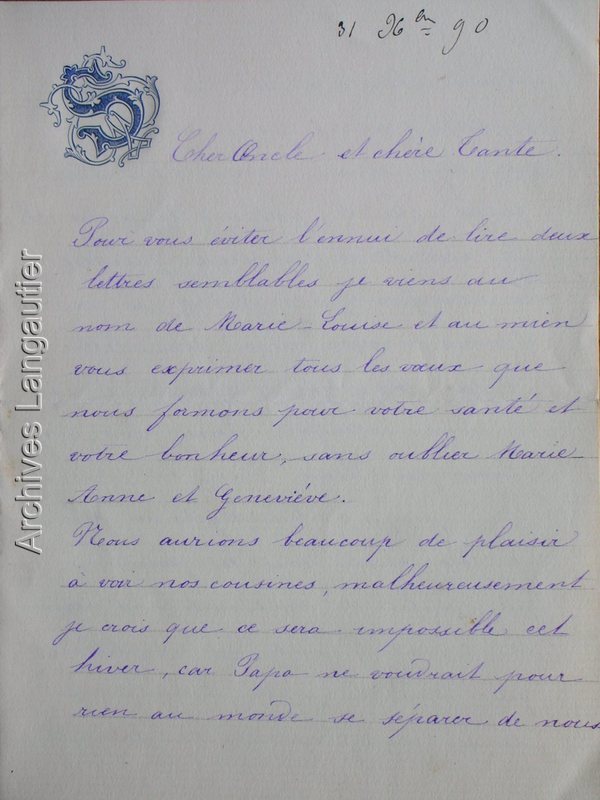 31 Xbre 90
Cher Oncle et chère Tante.
Pour vous éviter l'ennui de lire deux
lettres semblables je viens au
nom de Marie-Louise et au mien
vous exprimer tous les vœux que
nous formons pour votre santé et
votre bonheur, sans oublier Marie-
Anne et Geneviève.
Nous aurions beaucoup de plaisir
à voir nos cousines, malheureusement
je crois que ce sera impossible cet
hiver, car Papa ne voudrait pour
rien au monde se séparer de nous
Archives Langautier